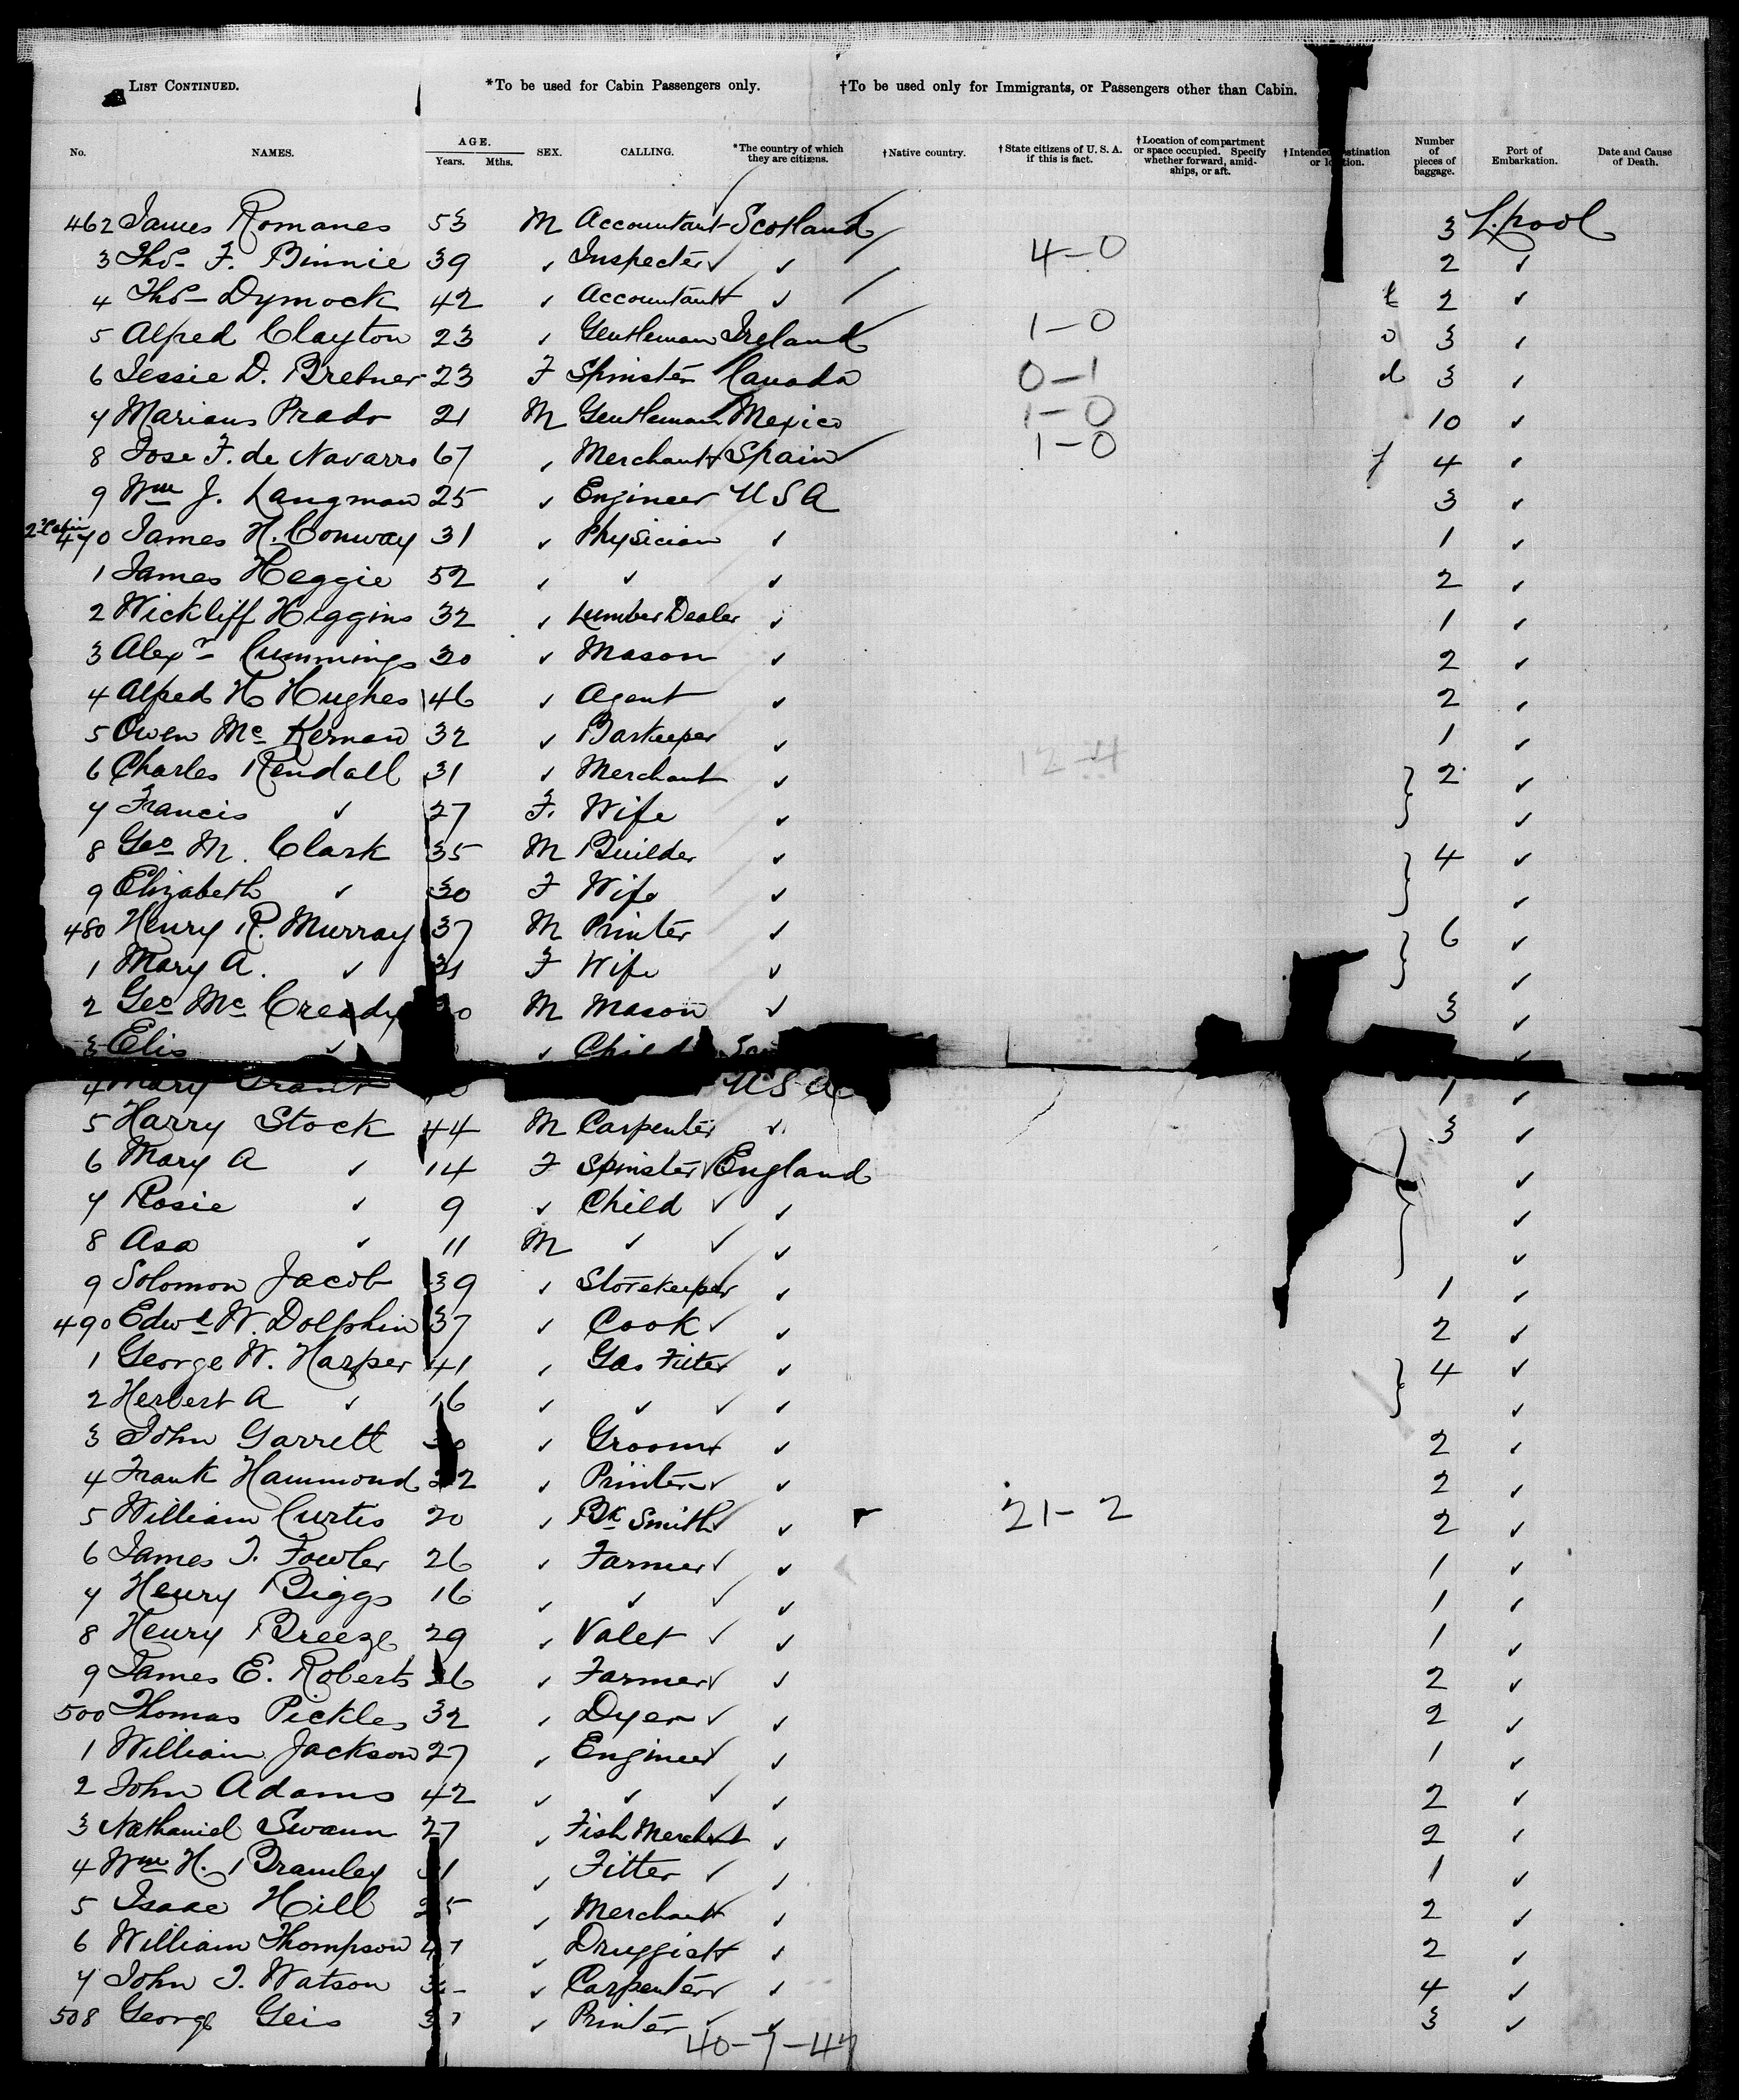 LIST CONTINUED. *To be used for Cabin Passengers only. †To be used only for Immigrants, or Passengers other than Cabin.
No. NAMES. AGE. Years. Mths. SEX. CALLING. *The country of which they are citizens. †Native country. †State citizens of U. S. A. if this is fact. †Location of compartment or space occupied. Specify whether forward, amidships, or aft. †Intended destination or location. Number of pieces of baggage. Port of Embarkation. Date and Cause of Death.
462 James Romanes 53 M Accountant Scotland 3 L.pool
3 Thos. F. Binnie 39 ✓ Inspector ✓ ✓ 4-0 2 ✓
4 Thos. Dymock 42 ✓ Accountant ✓ 2 ✓
5 Alfred Clayton 23 ✓ Gentleman Ireland 1-0 3 ✓
6 Jessie D. Bretner 23 F Spinster Canada 0-1 3 ✓
7 Mariano Prado 21 M Gentleman Mexico 1-0 10 ✓
8 Jose F. de Navarro 67 ✓ Merchant Spain 1-0 4 ✓
9 Wm J. Langman 25 ✓ Engineer U S A 3 ✓
2d Cabin 470 James H. Conway 31 ✓ Physician ✓ 1 ✓
1 James Heggie 52 ✓ ✓ ✓ 2 ✓
2 Wickliff Higgins 32 ✓ Lumber Dealer ✓ 1 ✓
3 Alexr Cummings 30 ✓ Mason ✓ 2 ✓
4 Alfred H Hughes 46 ✓ Agent ✓ 2 ✓
5 Owen Mc Kernan 32 ✓ Barkeeper ✓ 1 ✓
6 Charles Kendall 31 ✓ Merchant ✓ 12-4 2 ✓
7 Francis ✓ 27 F. Wife ✓ ✓
8 Geo M. Clark 35 M Builder ✓ 4 ✓
9 Elizabeth ✓ 30 F Wife ✓ ✓
480 Henry R. Murray 37 M Printer ✓ 6 ✓
1 Mary A. ✓ 31 F Wife ✓ ✓
2 Geo Mc Cready M Mason ✓ 3 ✓
3 Elis ✓ ✓ Child ✓
4 Mary Grant U S A 1 ✓
5 Harry Stock 44 M Carpenter ✓ 3 ✓
6 Mary A ✓ 14 F Spinster England ✓
7 Rosie ✓ 9 ✓ Child ✓ ✓ ✓
8 Asa ✓ 11 M ✓ ✓ ✓ ✓
9 Solomon Jacob 39 ✓ Storekeeper ✓ 1 ✓
490 Edwd W. Dolphin 37 ✓ Cook ✓ ✓ 2 ✓
1 George W. Harper 41 ✓ Gas Fitter ✓ 4 ✓
2 Herbert A ✓ 16 ✓ ✓ ✓ ✓ ✓
3 John Garrett ✓ Groom ✓ 2 ✓
4 Frank Hammond ✓ Printer ✓ ✓ 2 ✓
5 William Curtis 20 ✓ Bk Smith ✓ 21-2 2 ✓
6 James T. Fowler 26 ✓ Farmer ✓ ✓ 1 ✓
7 Henry Biggs 16 ✓ ✓ ✓ ✓ 1 ✓
8 Henry Breeze 29 ✓ Valet ✓ ✓ 1 ✓
9 James E. Roberts ✓ Farmer ✓ ✓ 2 ✓
500 Thomas Pickles 32 ✓ Dyer ✓ ✓ 2 ✓
1 William Jackson 27 ✓ Engineer ✓ 1 ✓
2 John Adams 42 ✓ ✓ ✓ ✓ 2 ✓
3 Nathaniel Swann 27 ✓ Fish Merchant ✓ 2 ✓
4 Wm H. Bramley ✓ Fitter ✓ ✓ 1 ✓
5 Isaac Hill ✓ Merchant ✓ 2 ✓
6 William Thompson ✓ Druggist ✓ 2 ✓
7 John T. Watson ✓ Carpenter ✓ ✓ 4 ✓
508 George Geis ✓ Printer ✓ ✓ 3 ✓
40-7-47